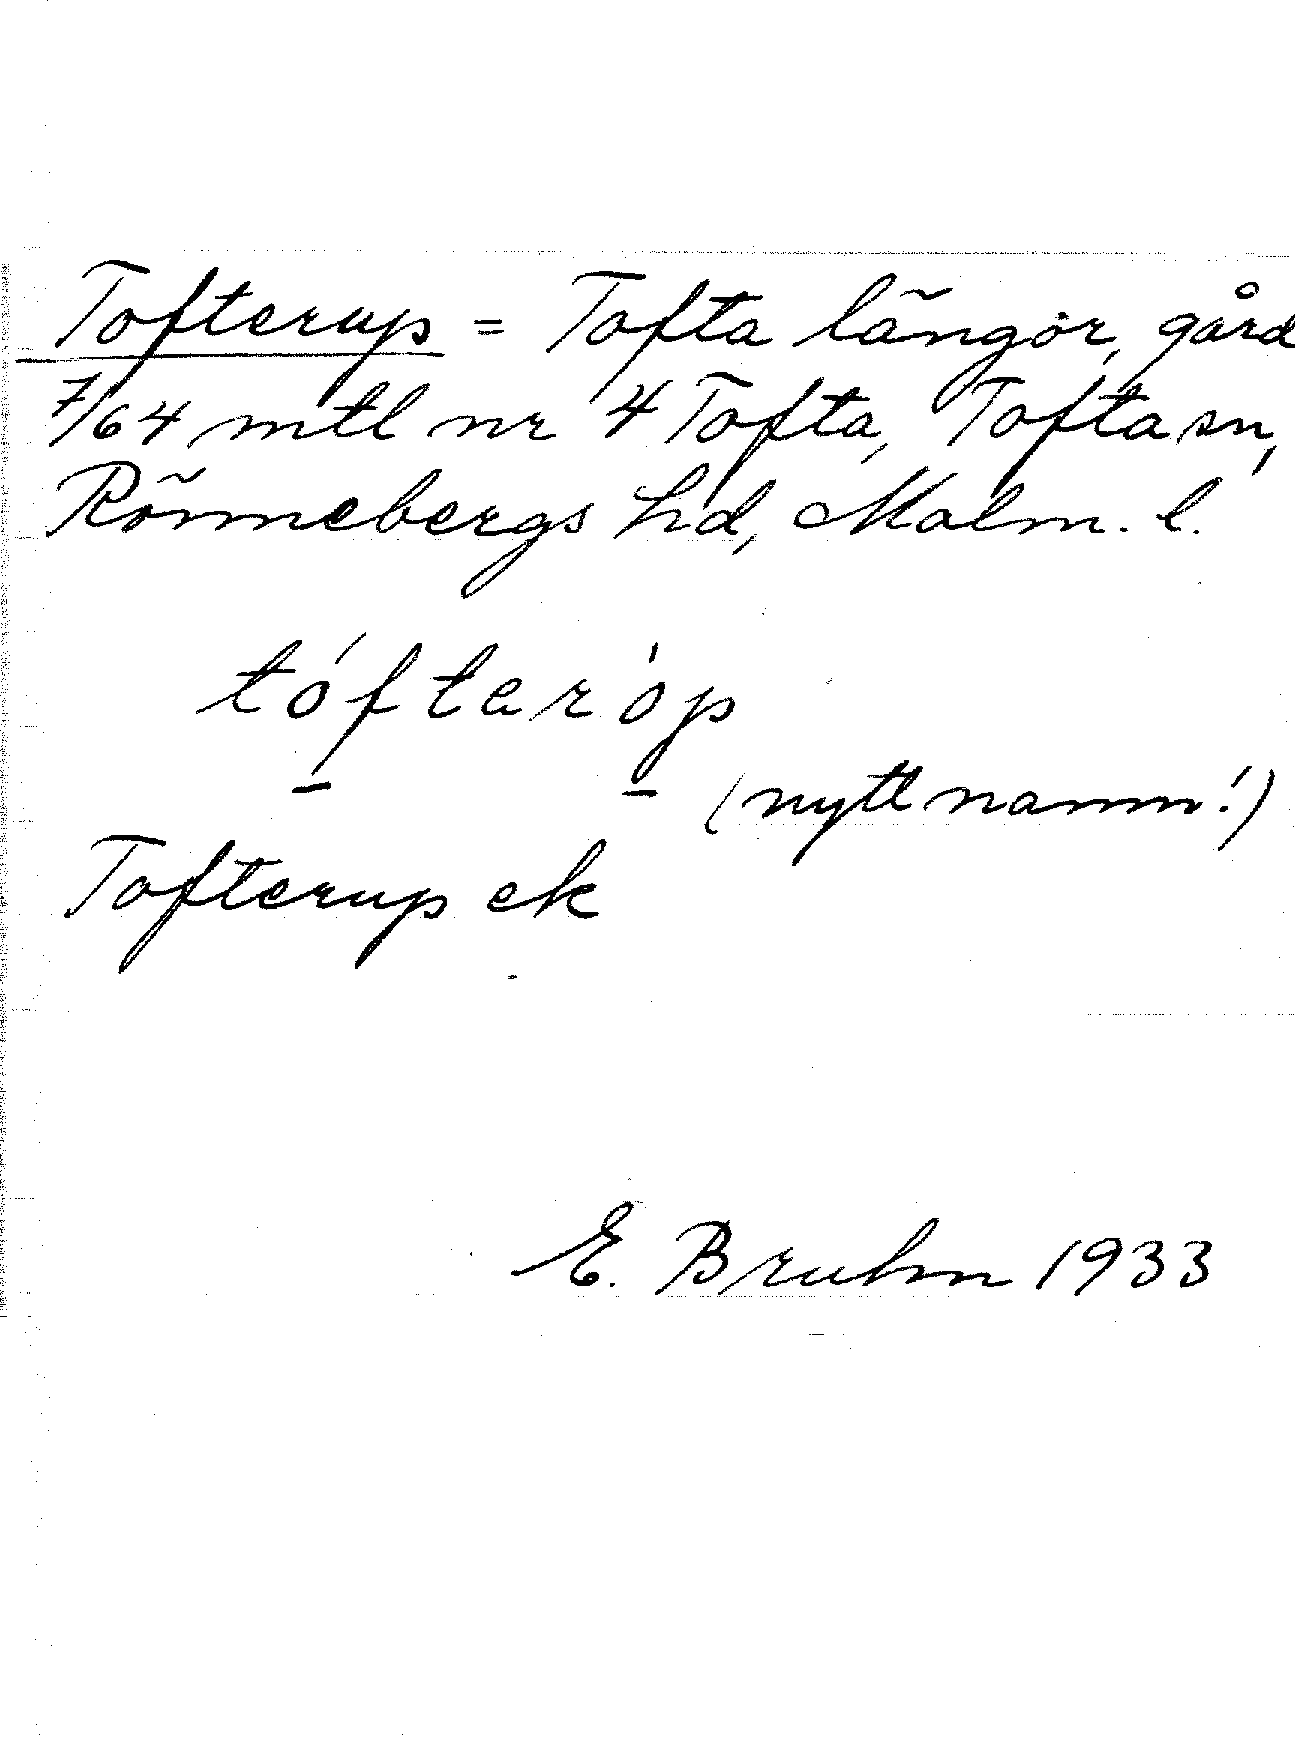 Tofterup = Tofta längor, gård
7/64 mtl nr 4 Tofta, Tofta sn,
Rönnebergs hd, Malm. l.
tófteróp
(nytt namn!)
Tofterup ek
E. Bruhn 1933